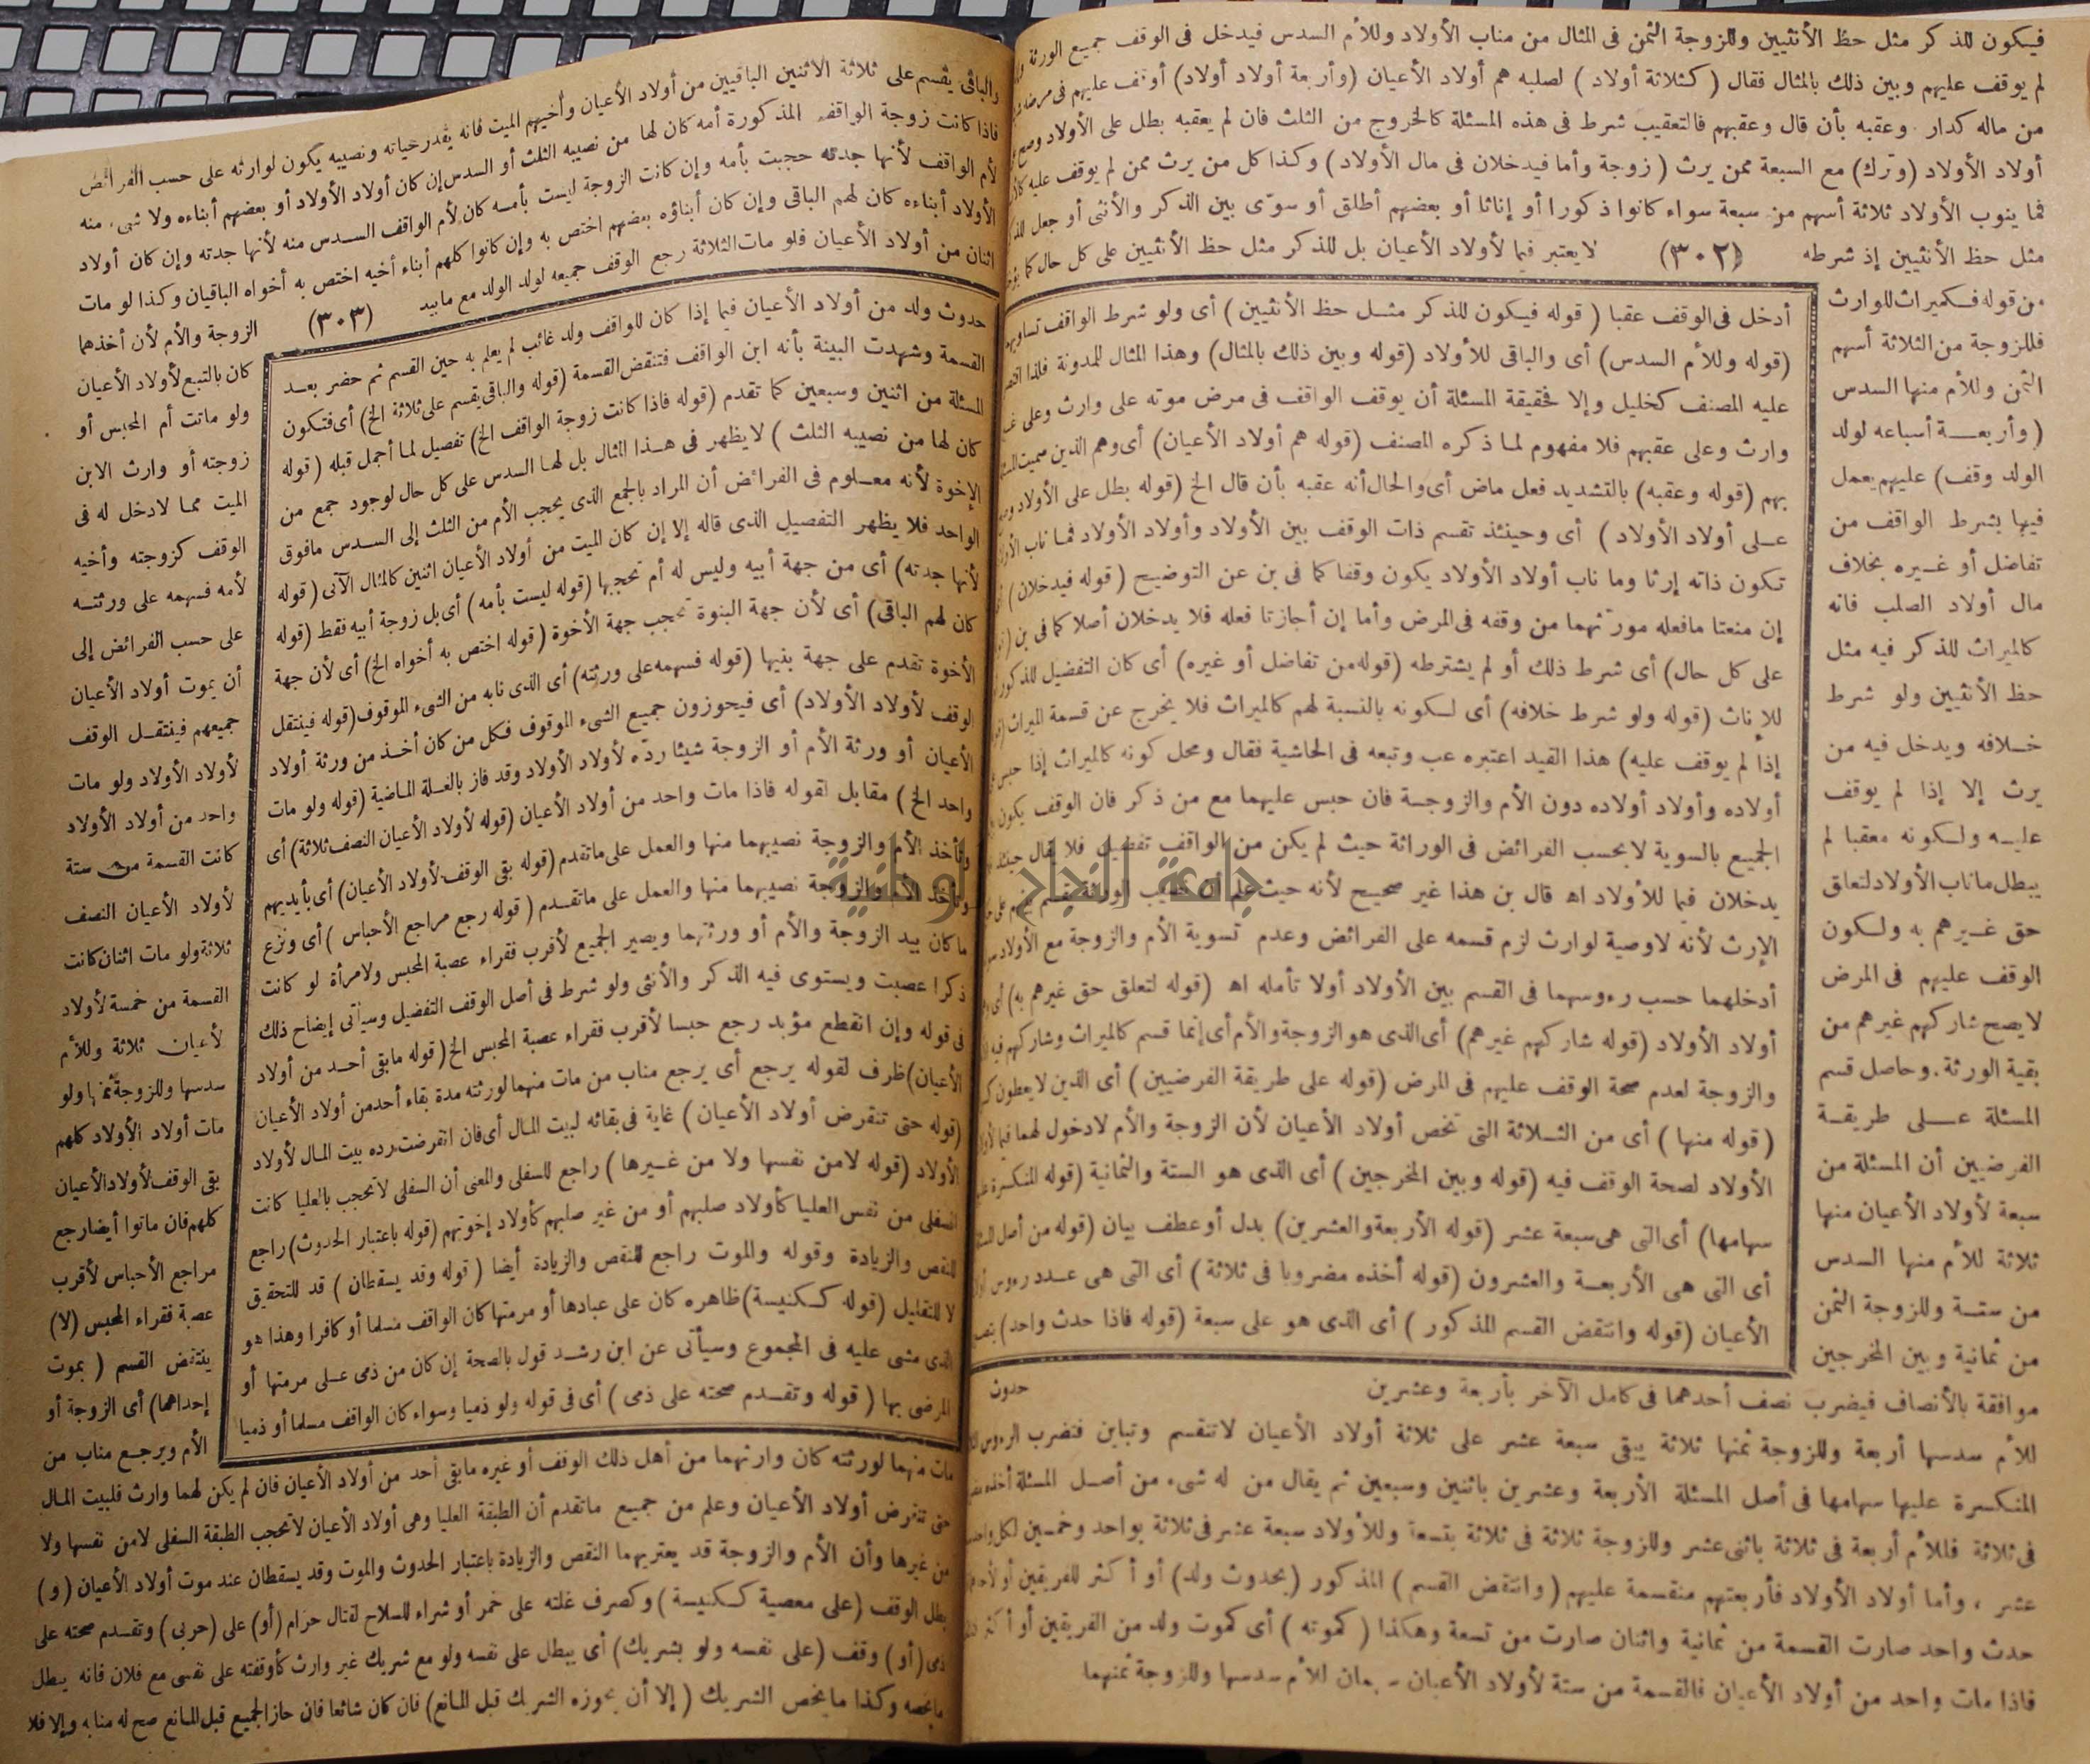 فيكون للذكر مثل حظ الأنثيين وللزوجة الثمن فى المثال من مناب الأولاد وللأم السدس فيدخل فى الوقف جميع الورثة
لم يوقف عليهم وبين ذلك بالمثال فقال (كثلاثة أولاد) لصلبه هم أولاد الأعيان (وأربعة أولاد أولاد) أوقف عليهم فى مرضه
من ماله كدار وعقبه بأن قال وعقبهم فالتعقيب شرط فى هذه المسئلة كالخروج من الثلث فان لم يعقبه بطل على الأولاد وصح
أولاد الأولاد (وترك) مع السبعة ممن يرث (زوجة وأما فيدخلان فى مال الأولاد) وكذا كل من يرث ممن لم يوقف عليه
فما ينوب الأولاد ثلاثة أسهم من سبعة سواء كانوا ذكورا أو إناثا أو بعضهم أطلق أو سوى بين الذكر والأنثى أو جعل
مثل حظ الأنثيين إذ شرطه (٣٠٢) لا يعتبر فيما لأولاد الأعيان بل للذكر مثل حظ الأنثيين على كل حال كما
من قوله فكميراث للوارث
فللزوجة من الثلاثة أسهم
الثمن وللأم منها السدس
(وأربعة أسباعه لولد
الولد وقف) عليهم يعمل
فيها بشرط الواقف من
تفاضل أو غيره بخلاف
مال أولاد الصلب فانه
كالميراث للذكر فيه مثل
حظ الأنثيين ولو شرط
خلافه ويدخل فيه من
يرث إلا إذا لم يوقف
عليه ولكونه معقبا لم
يبطل ماناب الأولاد لتعلق
حق غيرهم به ولكون
الوقف عليهم فى المرض
لا يصح شاركهم غيرهم من
بقية الورثة. وحاصل قسم
المسئلة على طريقة
الفرضيين أن المسئلة من
سبعة لأولاد الأعيان منها
ثلاثة للأم منها السدس
من ستة وللزوجة الثمن
من ثمانية وبين المخرجين
أدخل فى الوقف عقبا (قوله فيكون للذكر مثل حظ الأنثيين) أى ولو شرط الواقف
(قوله وللأم السدس) أى والباقى للأولاد (قوله وبين ذلك بالمثال) وهذا المثال للمدونة فلذا
عليه المصنف كخليل وإلا فحقيقة المسئلة أن يوقف الواقف فى مرض موته على وارث وعلى
وارث وعلى عقبهم فلا مفهوم لما ذكره المصنف (قوله هم أولاد الأعيان) أى وهم الذين سميت
بهم (قوله وعقبه) بالتشديد فعل ماض أى والحال أنه عقبه بأن قال الخ (قوله بطل على الأولاد
على أولاد الأولاد) أى وحينئذ تقسم ذات الوقف بين الأولاد وأولاد الأولاد فما ناب
تكون ذاته إرثا وما ناب أولاد الأولاد يكون وقفا كما فى بن عن التوضيح (قوله فيدخلان)
إن منعتا مافعله مورثهما من وقفه فى المرض وأما إن أجازتا فعله فلا يدخلان أصلا كما فى بن
على كل حال) أى شرط ذلك أو لم يشترطه (قوله من تفاضل أو غيره) أى كان التفضيل للذكور
للإناث (قوله ولو شرط خلافه) أى لكونه بالنسبة لهم كالميراث فلا يخرج عن قسمة الميراث
إذا لم يوقف عليه) هذا القيد اعتبره عب وتبعه فى الحاشية فقال ومحل كونه كالميراث إذا
أولاده وأولاد أولاده دون الأم والزوجة فان حبس عليهما مع من ذكر فان الوقف يكون
الجميع بالسوية لا بحسب الفرائض فى الوراثة حيث لم يكن من الواقف تفضيل فلا يقال
يدخلان فيما للأولاد اه قال بن هذا غير صحيح لأنه حيث
الإرث لأنه لا وصية لوارث لزم قسمه على الفرائض وعدم تسوية الأم والزوجة مع الأولاد
أدخلهما حسب رءوسهما فى القسم بين الأولاد أولا تأمله اه (قوله لتعلق حق غيرهم به)
أولاد الأولاد (قوله شاركهم غيرهم) أى الذى هو الزوجة والأم أى إنما قسم كالميراث وشاركهم فيه
والزوجة لعدم صحة الوقف عليهم فى المرض (قوله على طريقة الفرضيين) أى الذين لا يعطون
(قوله منها) أى من الثلاثة التى تخص أولاد الأعيان لأن الزوجة والأم لا دخول لهما
الأولاد لصحة الوقف فيه (قوله وبين المخرجين) أى الذى هو الستة والثمانية (قوله المنكسرة
سهامها) أى التى هى سبعة عشر (قوله الأربعة والعشرين) بدل أو عطف بيان (قوله من أصل
أى التى هى الأربعة والعشرون (قوله أخذه مضروبا فى ثلاثة) أى التى هى عدد رءوس
الأعيان (قوله وانتقض القسم المذكور) أى الذى هو على سبعة (قوله فاذا حدث واحد)
حدوث
موافقة بالأنصاف فيضرب نصف أحدهما فى كامل الآخر بأربعة وعشرين
للأم سدسها أربعة وللزوجة ثمنها ثلاثة يبقى سبعة عشر على ثلاثة أولاد الأعيان لا تنقسم وتباين فتضرب الرءوس
المنكسرة عليها سهامها فى أصل المسئلة الأربعة وعشرين باثنين وسبعين ثم يقال من له شىء من أصل المسئلة أخذه
فى ثلاثة فللأم أربعة فى ثلاثة باثنى عشر وللزوجة ثلاثة فى ثلاثة بتسعة وللأولاد سبعة عشر فى ثلاثة بواحد وخمسين لكل
عشر، وأما أولاد الأولاد فأربعتهم منقسمة عليهم (وانتقض القسم) المذكور (بحدوث ولد) أو أكثر للفريقين
حدث واحد صارت القسمة من ثمانية واثنان صارت من تسعة وهكذا (كموته) أى كموت ولد من الفريقين أو أكثر
فاذا مات واحد من أولاد الأعيان فالقسمة من ستة لأولاد الأعيان سهمان للأم سدسها وللزوجة ثمنهما
والباقى يقسم على ثلاثة الاثنين الباقيين من أولاد الأعيان وأخيهم الميت فانه يقدر حياته ونصيبه يكون لوارثه على حسب الفرائض
فاذا كانت زوجة الواقف المذكورة أمه كان لها من نصيبه الثلث أو السدس إن كان أولاد الأولاد أو بعضهم أبناءه ولا شىء منه
لأم الواقف لأنها جدته حجبت بأمه وإن كانت الزوجة ليست بأمه كان لأم الواقف السدس منه لأنها جدته وإن كان أولاد
الأولاد أبناءه كان لهم الباقى وإن كان أبناؤه بعضهم اختص به وإن كانوا كلهم أبناء أخيه اختص به أخواه الباقيان وكذا لو مات
اثنان من أولاد الأعيان فلو مات الثلاثة رجع الوقف جميعه لولد الولد مع مابيد (٣٠٣) الزوجة والأم لأن أخذهما
كان بالتبع لأولاد الأعيان
ولو ماتت أم المحبس أو
زوجته أو وارث الابن
الميت مما لا دخل له فى
الوقف كزوجته وأخيه
لأمه فسهمه على ورثته
على حسب الفرائض إلى
أن يموت أولاد الأعيان
جميعهم فينتقل الوقف
لأولاد الأولاد ولو مات
واحد من أولاد الأولاد
كانت القسمة من ستة
لأولاد الأعيان النصف
ثلاثة ولو مات اثنان كانت
القسمة من خمسة لأولاد
لأعيان ثلاثة وللأم
سدسها وللزوجة ثمنها ولو
مات أولاد الأولاد كلهم
بقى الوقف لأولاد الأعيان
كلهم فان ماتوا أيضا رجع
مراجع الأحباس لأقرب
عصبة فقراء المحبس (لا)
ينتقض القسم (بموت
إحداهما) أى الزوجة أو
الأم ويرجع مناب من
حدوث ولد من أولاد الأعيان فيما إذا كان للواقف ولد غائب لم يعلم به حين القسم ثم حضر بعد
القسمة وشهدت البينة بأنه ابن الواقف فتنقض القسمة (قوله والباقى يقسم على ثلاثة الخ) أى فتكون
المسئلة من اثنين وسبعين كما تقدم (قوله فاذا كانت زوجة الواقف الخ) تفصيل لما أجمل قبله (قوله
كان لها من نصيبه الثلث) لا يظهر فى هذا المثال بل لها السدس على كل حال لوجود جمع من
الإخوة لأنه معلوم فى الفرائض أن المراد بالجمع الذى يحجب الأم من الثلث إلى السدس مافوق
الواحد فلا يظهر التفصيل الذى قاله إلا إن كان الميت من أولاد الأعيان اثنين كالمثال الآتى (قوله
لأنها جدته) أى من جهة أبيه وليس له أم تحجبها (قوله ليست بأمه) أى بل زوجة أبيه فقط (قوله
كان لهم الباقى) أى لأن جهة البنوة تحجب جهة الأخوة (قوله اختص به أخواه الخ) أى لأن جهة
الأخوة تقدم على جهة بنيها (قوله فسهمه على ورثته) أى الذى نابه من الشىء الموقوف (قوله فينتقل
الوقف لأولاد الأولاد) أى فيحوزون جميع الشىء الموقوف فكل من كان أخذ من ورثة أولاد
الأعيان أو ورثة الأم أو الزوجة شيئا رده لأولاد الأولاد وقد فاز بالغلة الماضية (قوله ولو مات
واحد الخ) مقابل لقوله فاذا مات واحد من أولاد الأعيان (قوله لأولاد الأعيان النصف ثلاثة) أى
وتأخذ الأم والزوجة نصيبهما منها والعمل على ماتقدم (قوله بقى الوقف لأولاد الأعيان) أى بأيديهم
وتأخذ الأم والزوجة نصيبهما منها والعمل على ماتقدم (قوله رجع مراجع الأحباس) أى ونزع
ما كان بيد الزوجة والأم أو ورثتهما ويصير الجميع لأقرب فقراء عصبة المحبس ولامرأة لو كانت
ذكرا عصبت ويستوى فيه الذكر والأنثى ولو شرط فى أصل الوقف التفضيل وسيأتى إيضاح ذلك
فى قوله وإن انقطع مؤبد رجع حبسا لأقرب فقراء عصبة المحبس الخ (قوله مابقى أحد من أولاد
الأعيان) ظرف لقوله يرجع أى يرجع مناب من مات منهما لورثته مدة بقاء أحد من أولاد الأعيان
(قوله حتى تنقرض أولاد الأعيان) غاية فى بقائه لبيت المال أى فان انقرضت رده بيت المال لأولاد
الأولاد (قوله لا من نفسها ولا من غيرها) راجع للسفلى والمعنى أن السفلى لا تحجب بالعليا كانت
السفلى من نفس العليا كأولاد صلبهم أو من غير صلبهم كأولاد إخوتهم (قوله باعتبار الحدوث) راجع
للنقص والزيادة وقوله والموت راجع للنقص والزيادة أيضا (قوله وقد يسقطان) قد للتحقيق
لا للتقليل (قوله ككنيسة) ظاهره كان على عبادها أو مرمتها كان الواقف مسلما أو كافرا وهذا هو
الذى مشى عليه فى المجموع وسيأتى عن ابن رشد قول بالصحة إن كان من ذمى على مرمتها أو
المرضى بها (قوله وتقدم صحته على ذمى) أى فى قوله ولو ذميا وسواء كان الواقف مسلما أو ذميا
مات منهما لورثته كان وارثهما من أهل ذلك الوقف أو غيره مابقى أحد من أولاد الأعيان فان لم يكن لهما وارث فلبيت المال
حتى تنقرض أولاد الأعيان وعلم من جميع ماتقدم أن الطبقة العليا وهى أولاد الأعيان لا تحجب الطبقة السفلى لا من نفسها ولا
من غيرها وأن الأم والزوجة قد يعتريهما النقص والزيادة باعتبار الحدوث والموت وقد يسقطان عند موت أولاد الأعيان (و)
بطل الوقف (على معصية ككنيسة) وكصرف غلته على خمر أو شراء للسلاح لقتال حرام (أو) على (حربى) وتقدم صحته على
ذمى (أو) وقف (على نفسه ولو بشريك) أى يبطل على نفسه ولو مع شريك غير وارث كأوقفته على نفسى مع فلان فانه يبطل
مايخصه وكذا مايخص الشريك (إلا أن يحوزه الشريك قبل المانع) فان كان شائعا فان حاز الجميع قبل المانع صح له منابه وإلا فلا
جامعة النجاح الوطنية